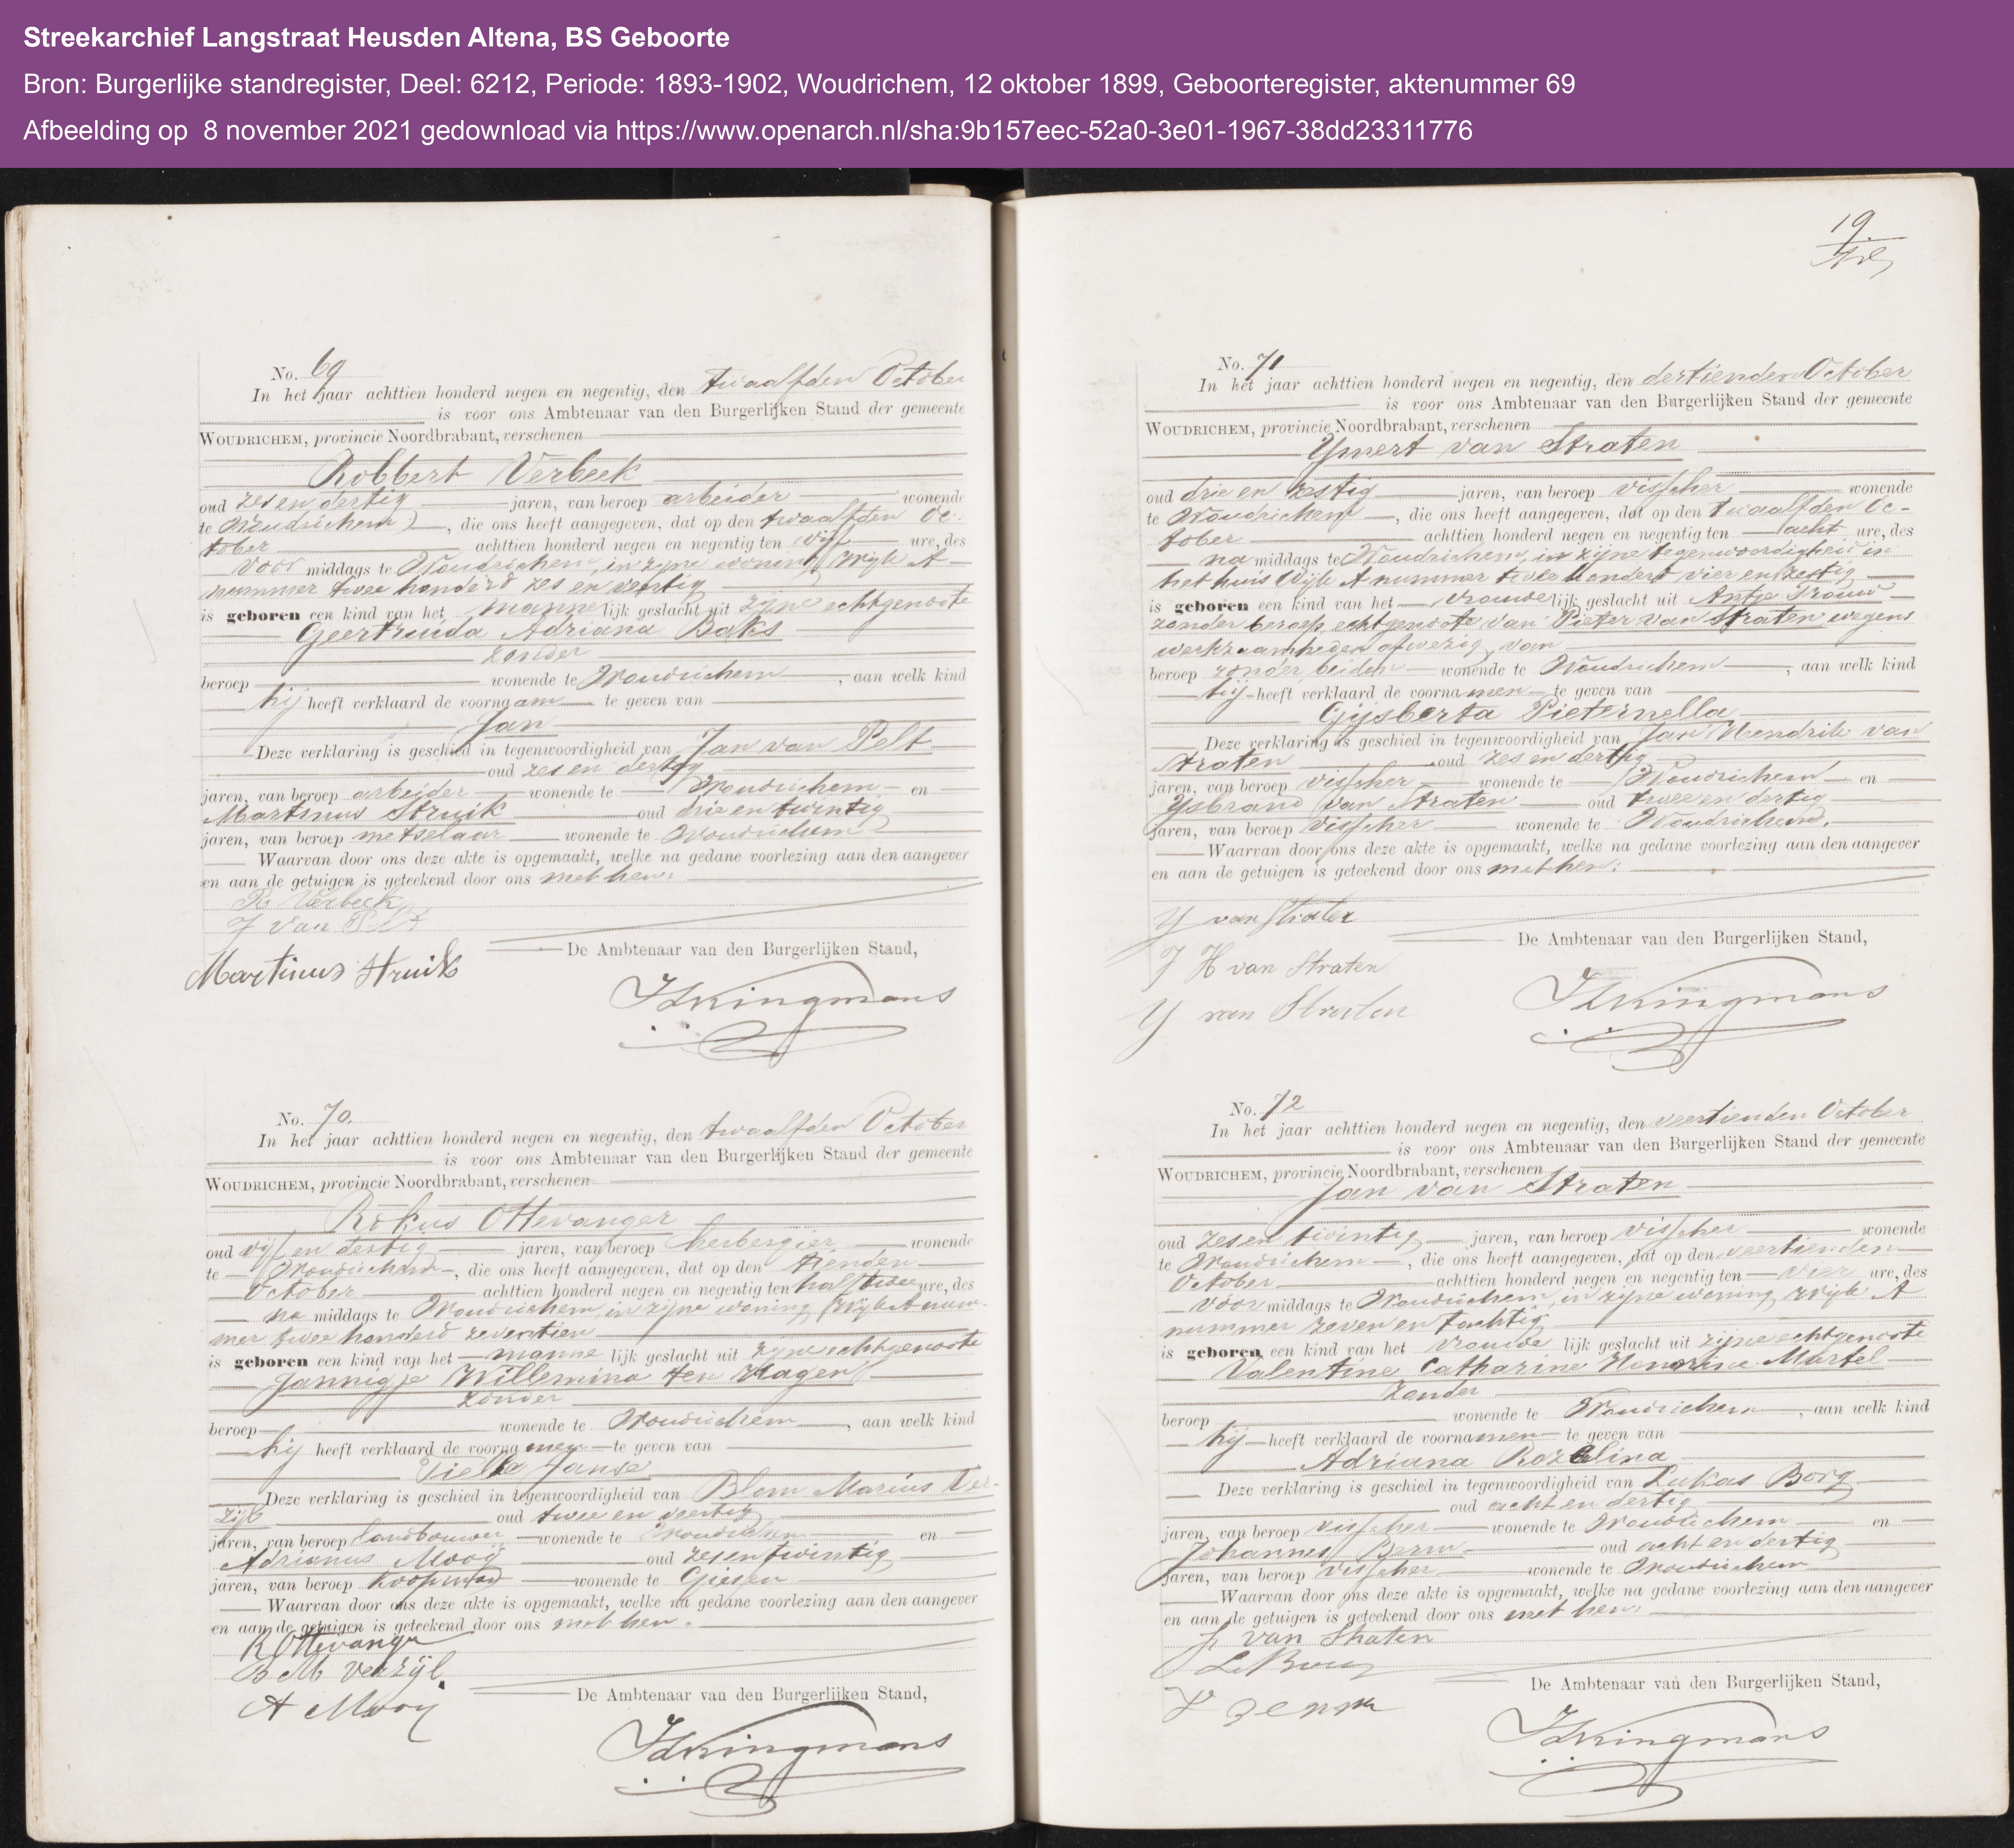 Streekarchief Langstraat Heusden Altena, BS Geboorte
Bron: Burgerlijke standregister, Deel: 6212, Periode: 1893-1902, Woudrichem, 12 oktober 1899, Geboorteregister, aktenummer 69
Afbeelding op 8 november 2021 gedownload via https://www.openarch.nl/sha:9b157eec-52a0-3e01-1967-38dd23311776
No. 69
In het jaar achttien honderd negen en negentig, den twaalfden October
is voor ons Ambtenaar van den Burgerlijken Stand der gemeente
WOUDRICHEM, provincie Noordbrabant, verschenen
Robbert Verbeek
oud zes en dertig jaren, van beroep arbeider wonende
te Woudrichem, die ons heeft aangegeven, dat op den twaalfden Oc-
tober achttien honderd negen en negentig ten vijf ure, des
voor middags te Woudrichem, in zijne woning Wijk A
nummer twee honderd zes en veertig
is geboren een kind van het mannelijk geslacht uit zijne echtgenoote
Geertruida Adriana Baks
zonder
beroep wonende te Woudrichem, aan welk kind
hij heeft verklaard de voornaam te geven van
Jan
Deze verklaring is geschied in tegenwoordigheid van Jan van Pelt
oud zes en dertig
jaren, van beroep arbeider wonende te Woudrichem en
Martinus Struik oud drie en twintig
jaren, van beroep metselaar wonende te Woudrichem
Waarvan door ons deze akte is opgemaakt, welke na gedane voorlezing aan den aangever
en aan de getuigen is geteekend door ons met hen.
R. Verbeek
J van Pelt
De Ambtenaar van den Burgerlijken Stand,
Martinus Struik
Kingmans
No. 70.
In het jaar achttien honderd negen en negentig, den twaalfden October
is voor ons Ambtenaar van den Burgerlijken Stand der gemeente
WOUDRICHEM, provincie Noordbrabant, verschenen
Rokus Ottevanger
oud vijf en dertig jaren, van beroep herbergier wonende
te Woudrichem, die ons heeft aangegeven, dat op den tienden
October achttien honderd negen en negentig ten half twee ure, des
na middags te Woudrichem, in zijne woning Wijk A num-
mer twee honderd zeventien
is geboren een kind van het mannelijk geslacht uit zijne echtgenoote
Jannigje Willemina ten Hagen
zonder
beroep wonende te Woudrichem, aan welk kind
hij heeft verklaard de voornamen te geven van
Janse
Deze verklaring is geschied in tegenwoordigheid van Blom Marius Ver-
zijl oud twee en veertig
jaren, van beroep landbouwer wonende te Woudrichem en
Adrianus Mooij oud zes en twintig
jaren, van beroep koopman wonende te Giesen
Waarvan door ons deze akte is opgemaakt, welke na gedane voorlezing aan den aangever
en aan de getuigen is geteekend door ons met hen.
R Ottevanger
B M Verzijl
A Mooij
De Ambtenaar van den Burgerlijken Stand,
Kingmans
19
No. 71
In het jaar achttien honderd negen en negentig, den dertienden October
is voor ons Ambtenaar van den Burgerlijken Stand der gemeente
WOUDRICHEM, provincie Noordbrabant, verschenen
Ymert van Straten
oud drie en zestig jaren, van beroep visscher wonende
te Woudrichem, die ons heeft aangegeven, dat op den twaalfden Oc-
tober achttien honderd negen en negentig ten acht ure, des
na middags te Woudrichem, in zijne tegenwoordigheid in
het huis Wijk A nummer twee honderd vier en zestig
is geboren een kind van het vrouwelijk geslacht uit Antje Trouw
zonder beroep, echtgenoote van Pieter van Straten, wegens
werkzaamheden afwezig, van
beroep zonder, beiden wonende te Woudrichem, aan welk kind
hij heeft verklaard de voornamen te geven van
Gijsberta Pieternella
Deze verklaring is geschied in tegenwoordigheid van Jan Hendrik van
Straten oud zes en dertig
jaren, van beroep visscher wonende te Woudrichem en
Ysbrand van Straten oud twee en dertig
jaren, van beroep visscher wonende te Woudrichem.
Waarvan door ons deze akte is opgemaakt, welke na gedane voorlezing aan den aangever
en aan de getuigen is geteekend door ons met hen.
Y van Straten
De Ambtenaar van den Burgerlijken Stand,
J H van Straten
Y van Straten
Kingmans
No. 72
In het jaar achttien honderd negen en negentig, den veertienden October
is voor ons Ambtenaar van den Burgerlijken Stand der gemeente
WOUDRICHEM, provincie Noordbrabant, verschenen
Jan van Straten
oud zes en twintig jaren, van beroep visscher wonende
te Woudrichem, die ons heeft aangegeven, dat op den veertienden
October achttien honderd negen en negentig ten vier ure, des
voor middags te Woudrichem, in zijne woning, Wijk A
nummer zeven en tachtig
is geboren een kind van het vrouwelijk geslacht uit zijne echtgenoote
Valentine Catharine Honorine Martel
zonder
beroep wonende te Woudrichem, aan welk kind
hij heeft verklaard de voornamen te geven van
Adriana Rozalina
Deze verklaring is geschied in tegenwoordigheid van Lukas Borg
oud acht en dertig
jaren, van beroep visscher wonende te Woudrichem en
Johannes oud acht en dertig
jaren, van beroep visscher wonende te Woudrichem
Waarvan door ons deze akte is opgemaakt, welke na gedane voorlezing aan den aangever
en aan de getuigen is geteekend door ons met hen.
J. van Straten
L Borg
De Ambtenaar van den Burgerlijken Stand,
Kingmans